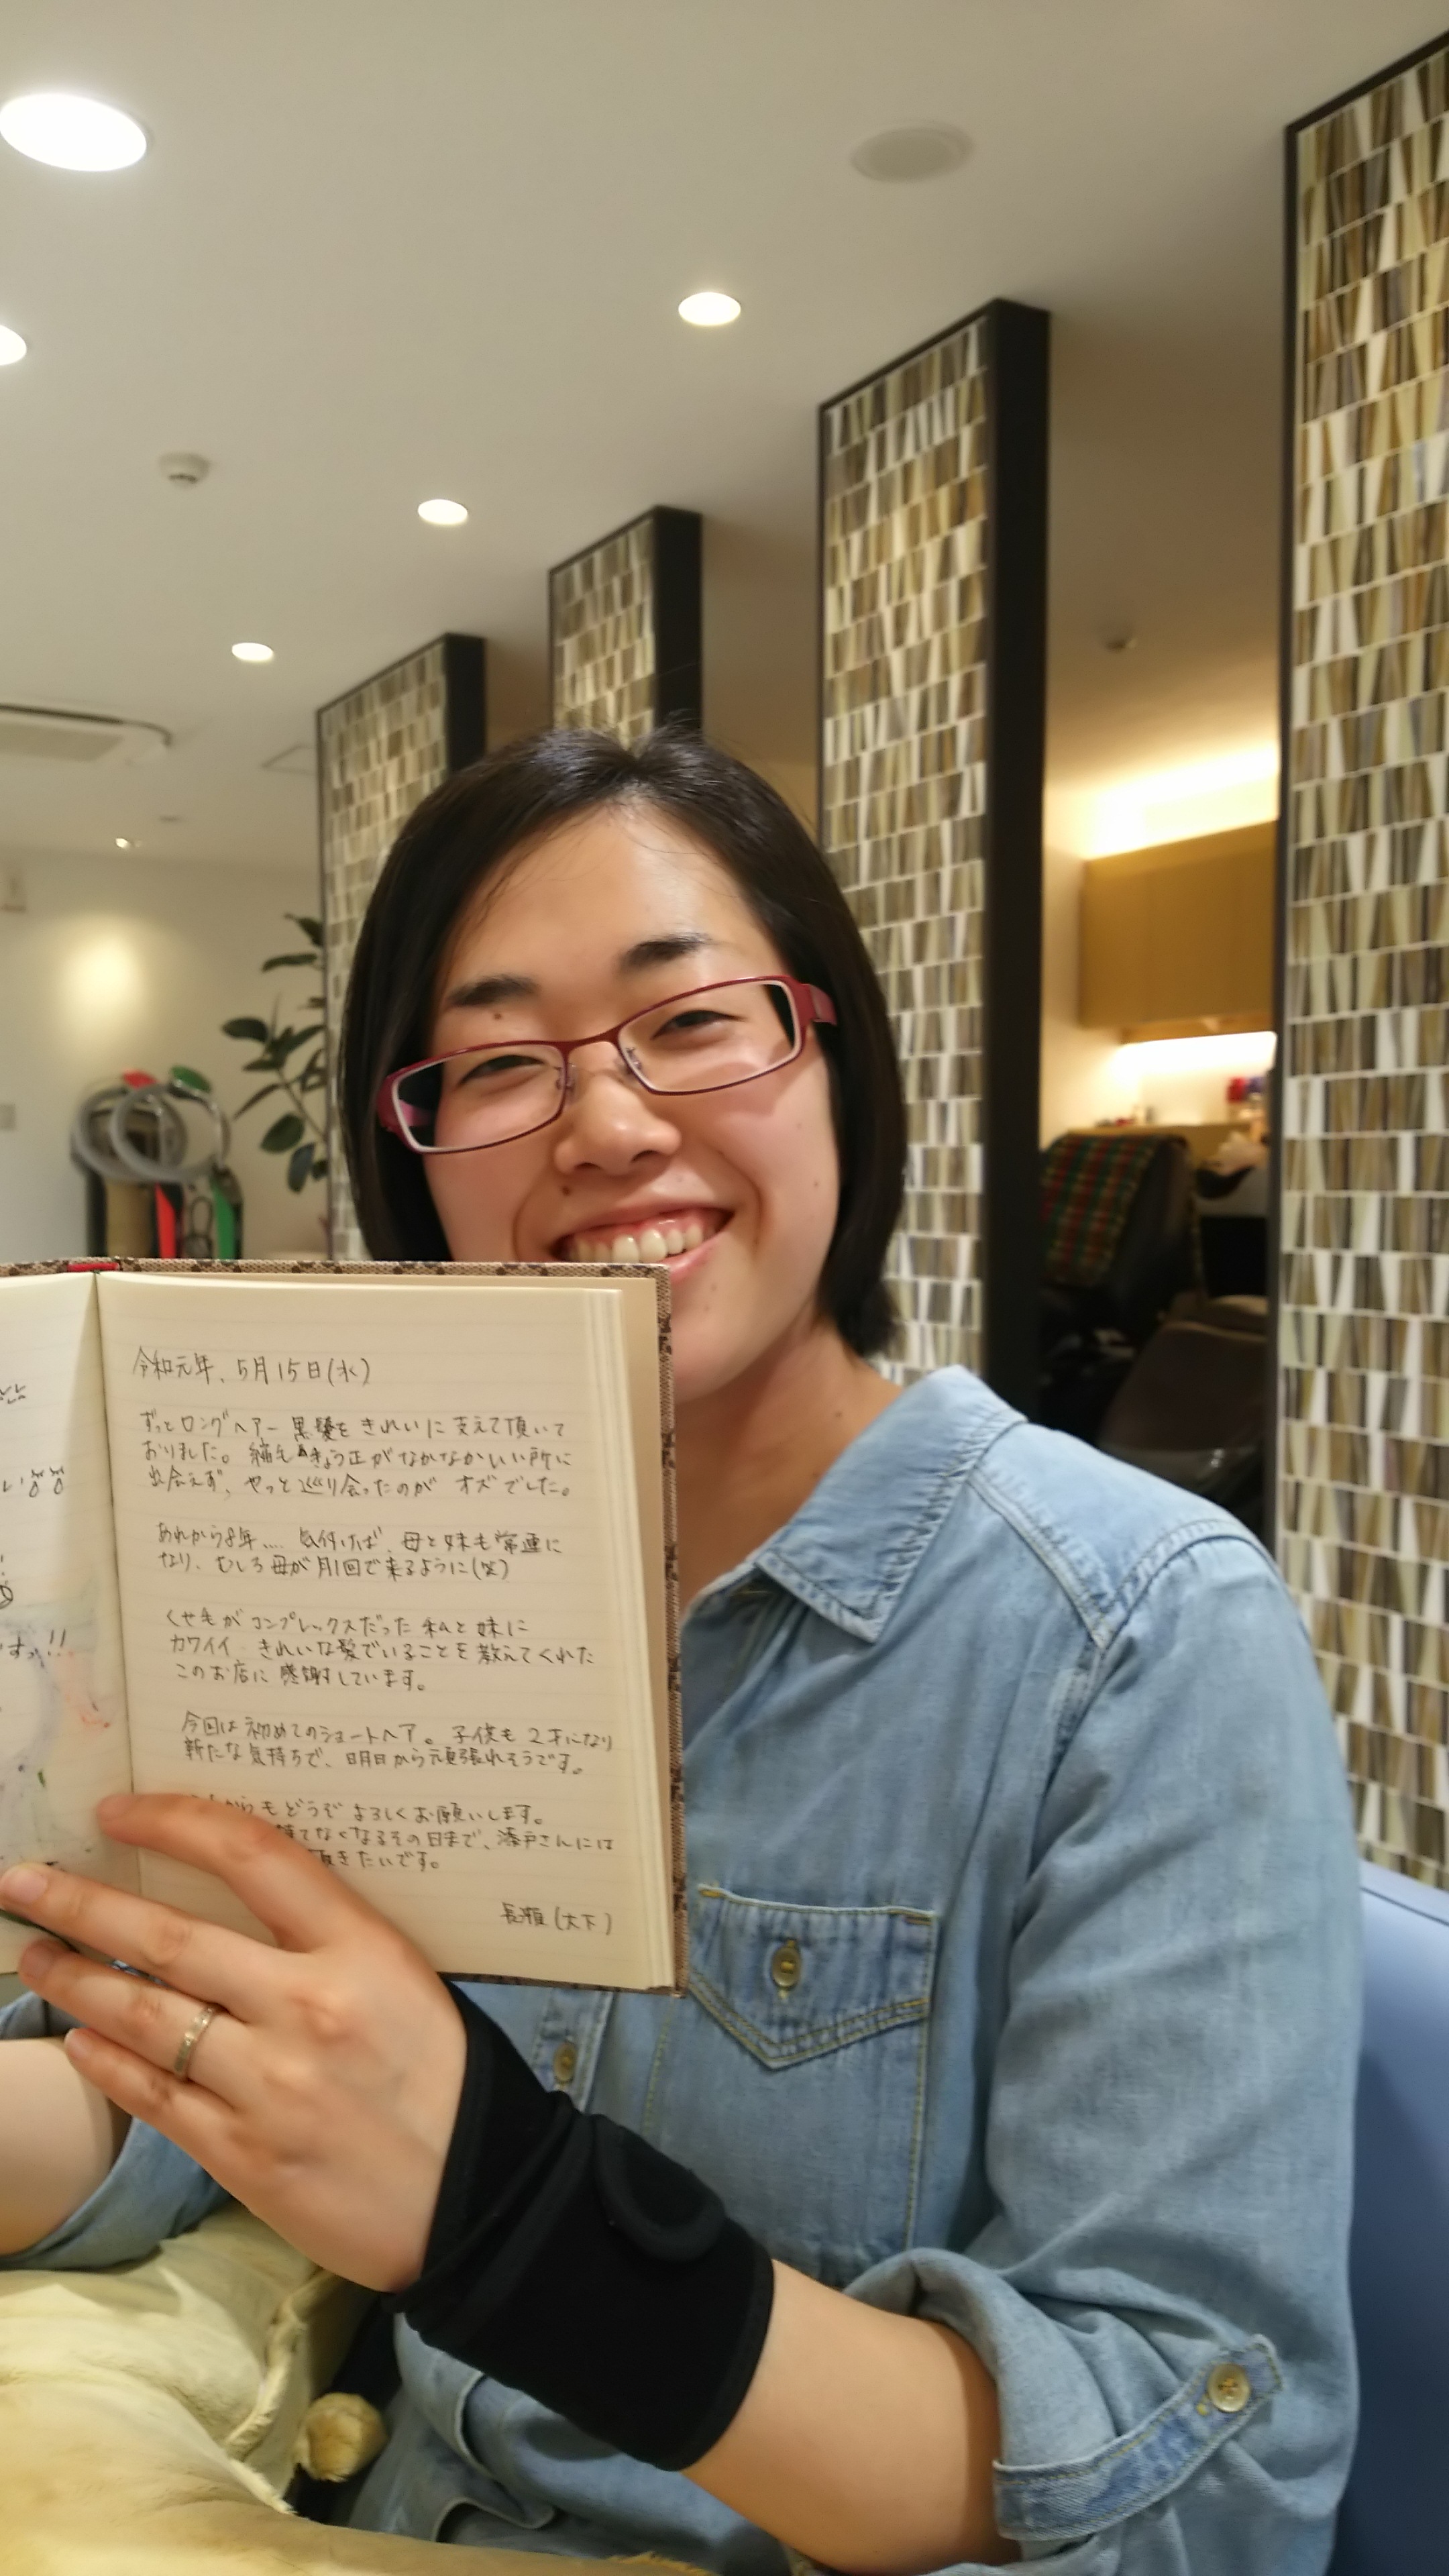 令和元年、5月15日(水)
ずっとロングヘアー 黒髪を きれいに 支えて頂いて
おりました。 縮毛きょう正が なかなか いい所に
出会えず、やっと巡り会ったのが オズでした。
あれから8年.... 気付けば、母と妹も常連に
なり、むしろ母が月1回で来るように(笑)
くせ毛が コンプレックスだった 私と 妹に
カワイイ きれいな髪でいることを 教えてくれた
このお店に 感謝しています。
今回は初めてのショートヘア。子供も 2才になり
新たな気持ちで、明日から頑張れそうです。
からもどうぞ よろしくお願いします。
てなくなるその日まで、添戸さんには
きたいです。
長瀬(大下)
すっ!!